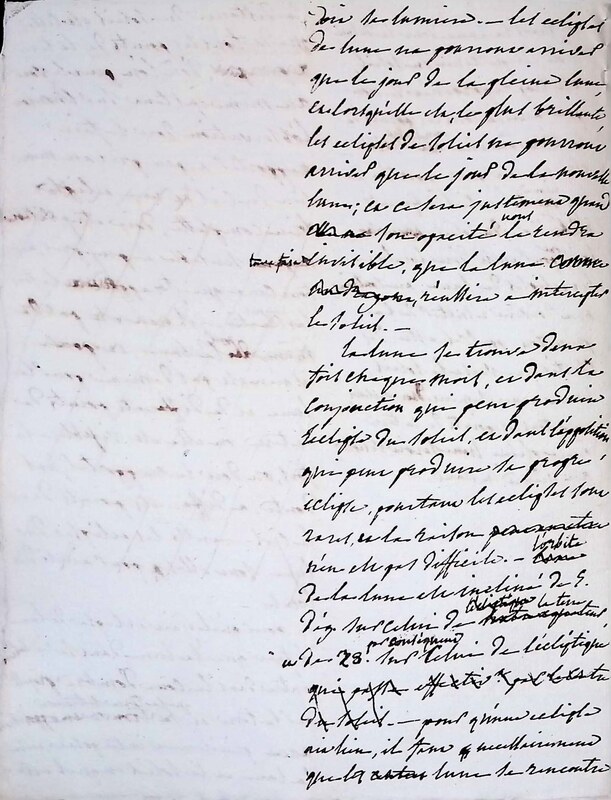 soir sa lumiere. — les eclipses
de lune ne pourront arriver
que le jour de la pleine lune
et lorsqu'elle est le plus brillante
les eclipses de soleil ne pourront
arriver que le jour de la nouvelle
lune; et ce sera justement quand
son opacité nous la rendra
invisible, que la lune
réussira a intercepter
le soleil. —
la lune se trouve deux
fois chaque mois, et dans la
conjonction qui peut produire
l'eclipse du soleil, et dans l'opposition
qui peut produire sa propre
eclipse, pourtant les eclipses sont
rares, et la raison
n'en est pas difficile. — l'orbite
de la lune est incliné de 5.
dég. sur celui de la terre
et de 28. par conséquent sur celui de l'écliptique
qui passe par le centre
du soleil. — pour qu'une eclipse
ait lieu, il faut necessairement
que la lune se rencontre